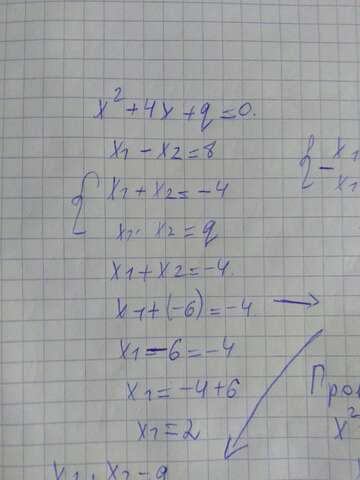 x² + 4x + q = 0.
x₁ - x₂ = 8
{ x₁ + x₂ = -4
x₁ · x₂ = q
x₁ + x₂ = -4.
x₁ + (-6) = -4 →
x₁ - 6 = -4
x₁ = -4 + 6
x₁ = 2
{ - x₁
x₁
Пров
x²